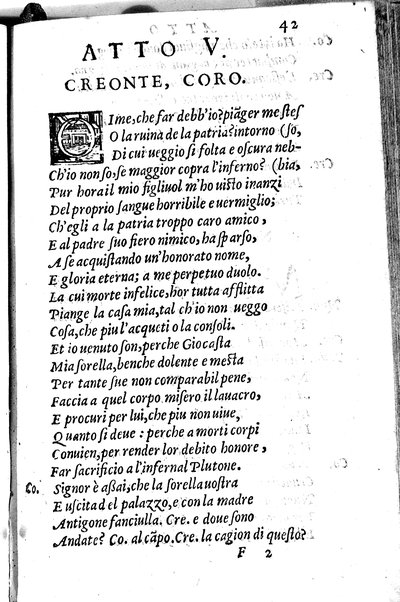 42
ATTO V.
CREONTE, CORO.
OIme, che far debb'io? piãger me stes
O la ruina de la patria? intorno (so,
Di cui ueggio si folta e oscura neb-
Ch'io non so, se maggior copra l'inferno? (bia,
Pur hora il mio figliuol m'ho uisto inanzi
Del proprio sangue horribile e uermiglio;
Ch'egli a la patria troppo caro amico,
E al padre suo fiero nimico, ha sparso,
A se acquistando un'honorato nome,
E gloria eterna; a me perpetuo duolo.
La cui morte infelice, hor tutta afflitta
Piange la casa mia, tal ch'io non ueggo
Cosa, che piu l'acqueti o la consoli.
Et io uenuto son, perche Giocasta
Mia sorella, benche dolente e mesta
Per tante sue non comparabil pene,
Faccia a quel corpo misero il lauacro,
E procuri per lui, che piu non uiue,
Quanto si deue: perche a morti corpi
Conuien, per render lor debito honore,
Far sacrificio a l'infernal Plutone.
Co. Signor è aßai, che la sorella uostra
E uscita del palazzo, e con la madre
Antigone fanciulla. Cre. e doue sono
Andate? Co. al cãpo. Cre. la cagion di questo?
F 2